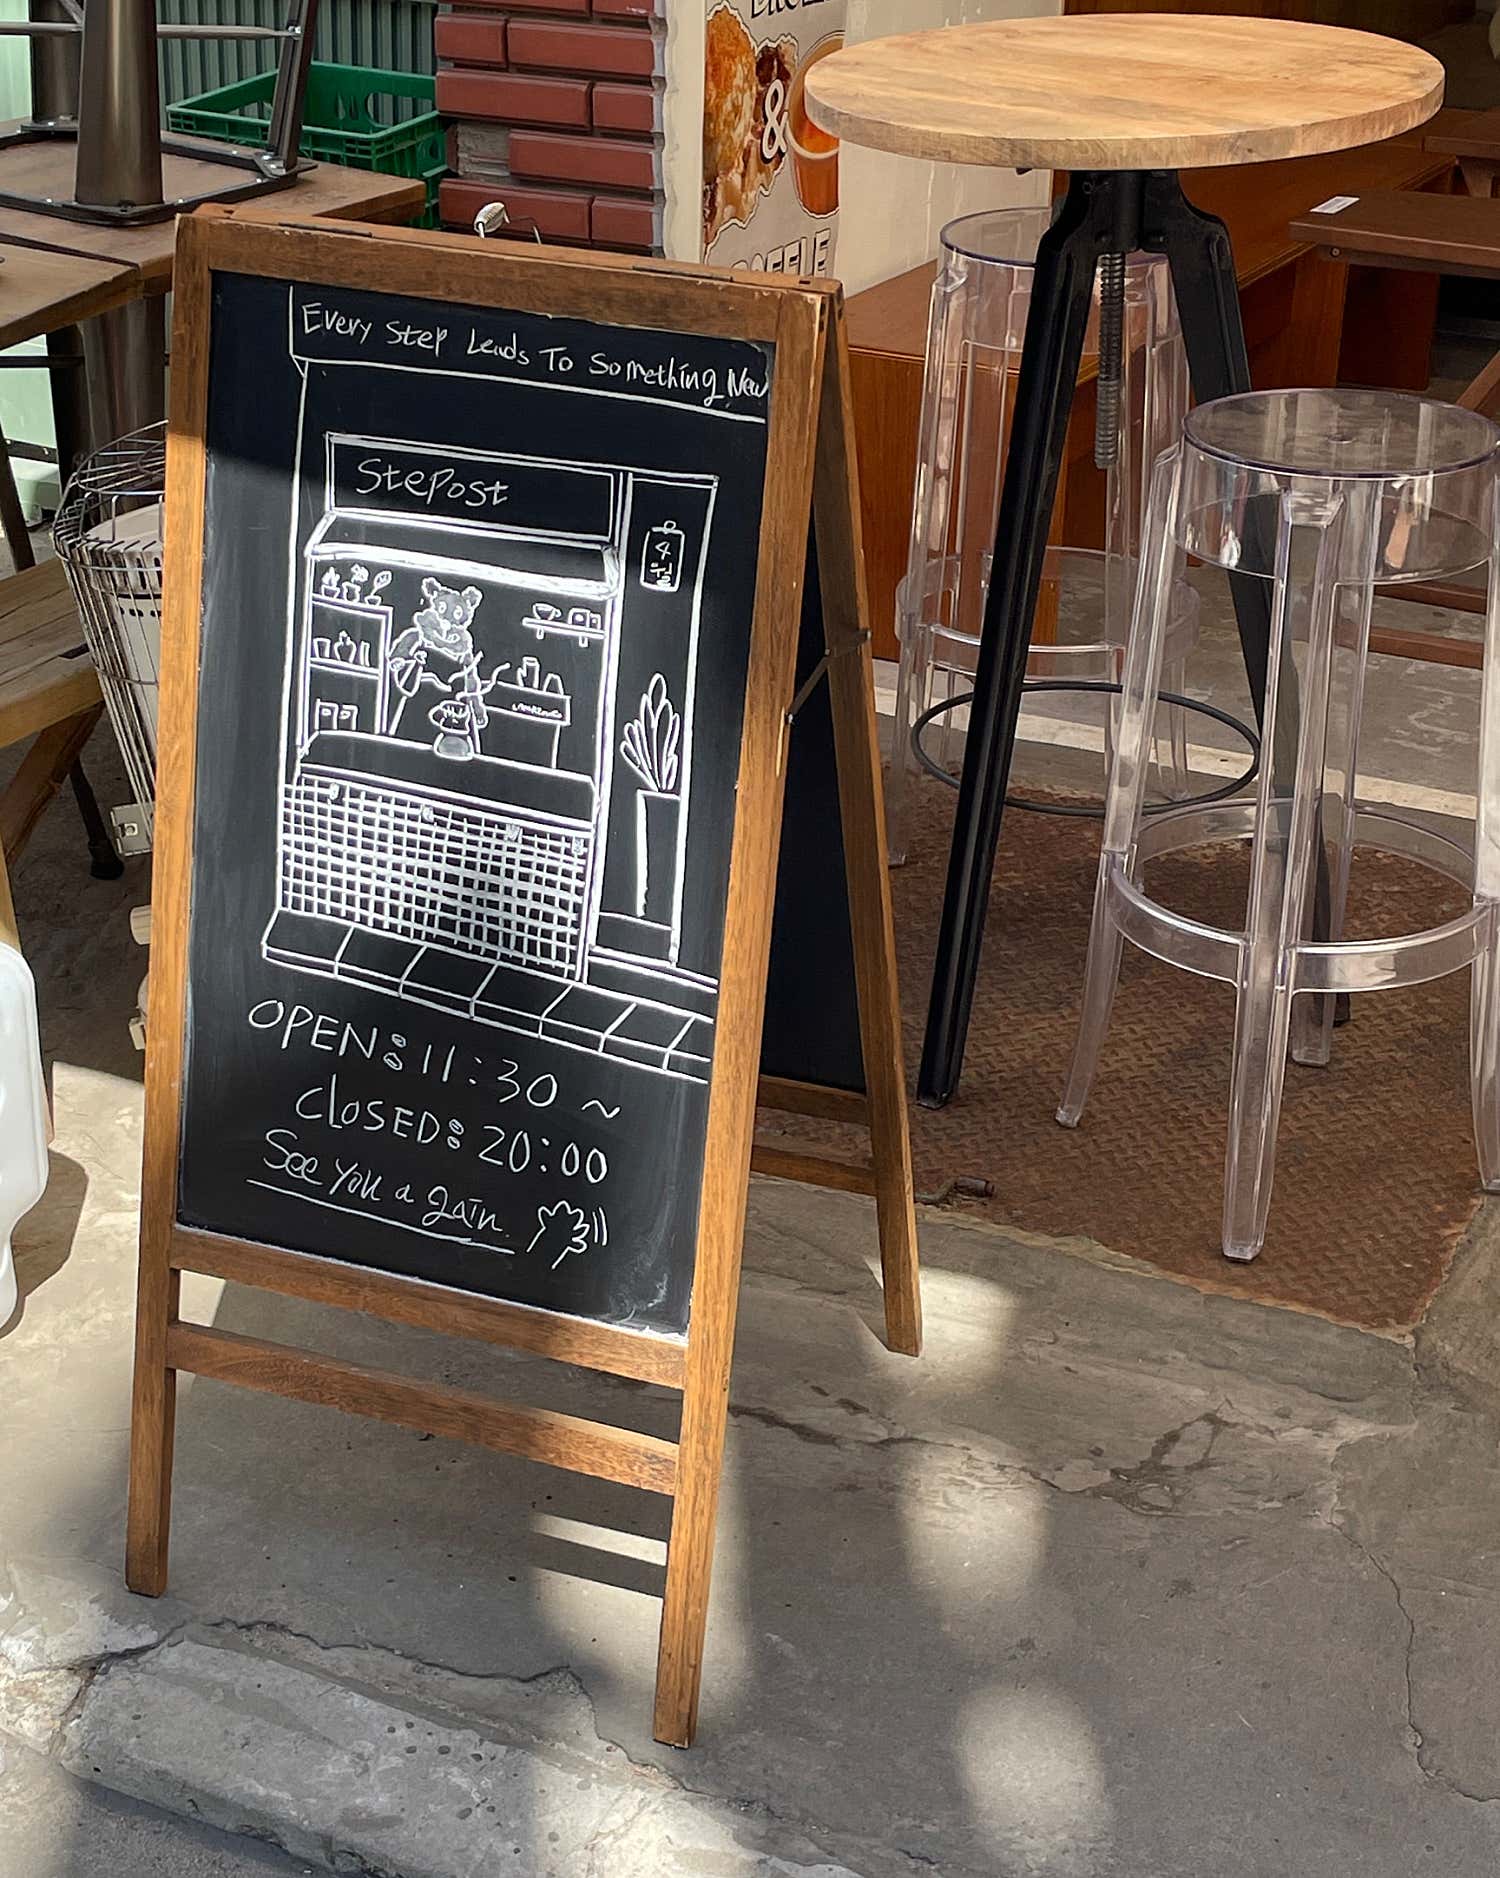 &
Every Step Leads To Something New
StePost
4
월
OPEN:11:30 ~
CLOSED:20:00
See you a gain.